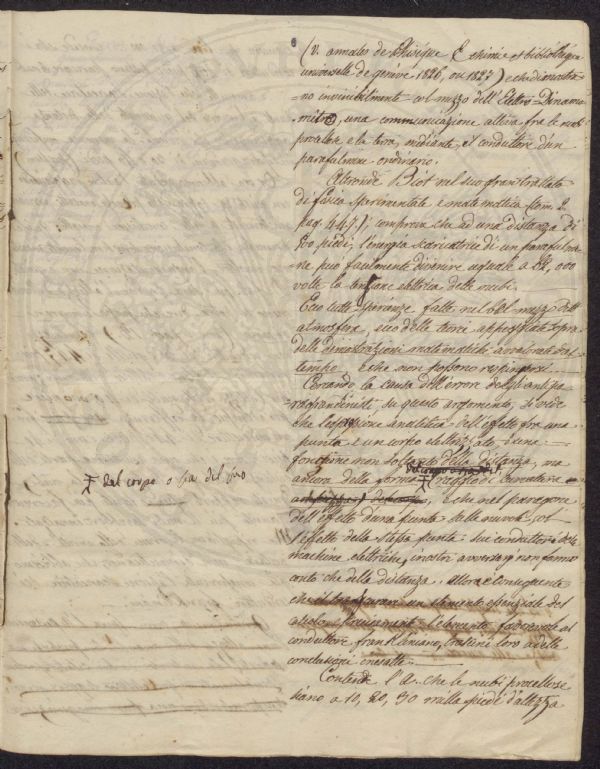 (v. annales de Phisique & chimie et bibliothèque
universelle de genève 1826, ou 1827) e che dimostra-
-no invincibilmente col mezzo dell'Elettro-Dinamo-
metro, una communicazione attiva fra le nubi
procellose e la terra, mediante, il condutore d'un
parafulmine ordinario.
Altronde Biot nel suo gran trattato
di fisica sperimentale e matematica (tom. 2.
pag. 447), comprova che ad una distanza di
500 piedi, l'energia scaricatrice di un parafulmi-
ne può facilmente divenire uguale a 82,000
volte la tensione elettrica delle nubi.
Ecco tutte sperienze fatte nel bel mezzo dell'
atmosfera, ecco delle teorie appoggiate sopra
delle dimostrazioni matematiche avvalorate dal
tempo e che non possono respingersi.
Cercando la causa dell'errore degli antipa-
-ragrandinisti su questo argomento, si vede
che l'espressione analitica dell'effetto fra una
punta e un corpo elettrizzato, è una
fonzione non soltanto della distanza, ma
ancora della forma ₮ raggio di curvatura
e che nel paragone
dell'effetto d'una punta sulle nuvole, col
l'effetto della stessa punta sui conduttori delle
machine elettriche, i nostri avversarj non fanno
conto che della distanza. Allora è conseguente
che il trascurare un elemento essenziale del
calcolo, precisamente l'elemento favorevole al
conduttore frankliniano, trascini loro a delle
conclusioni inesatte.
Contende l'A. che le nubi procellose
siano a 10, 20, 30 milla piedi d'altezza
₮ del corpo o sia del suo